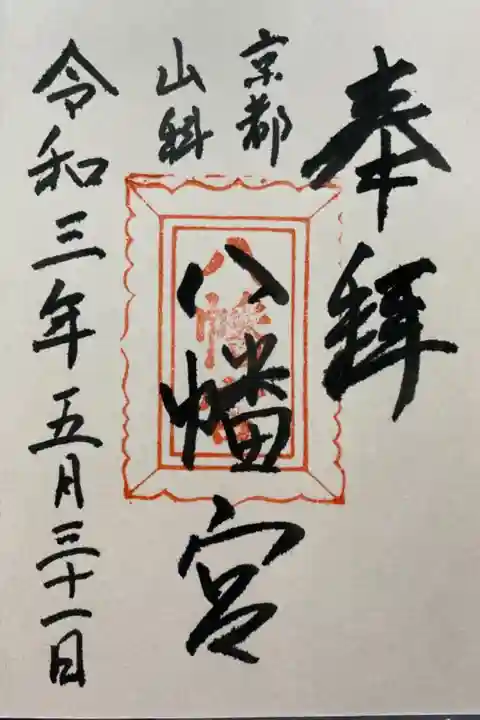 奉拜
京都
山科
八幡宮
八幡宮
令和三年五月三十一日